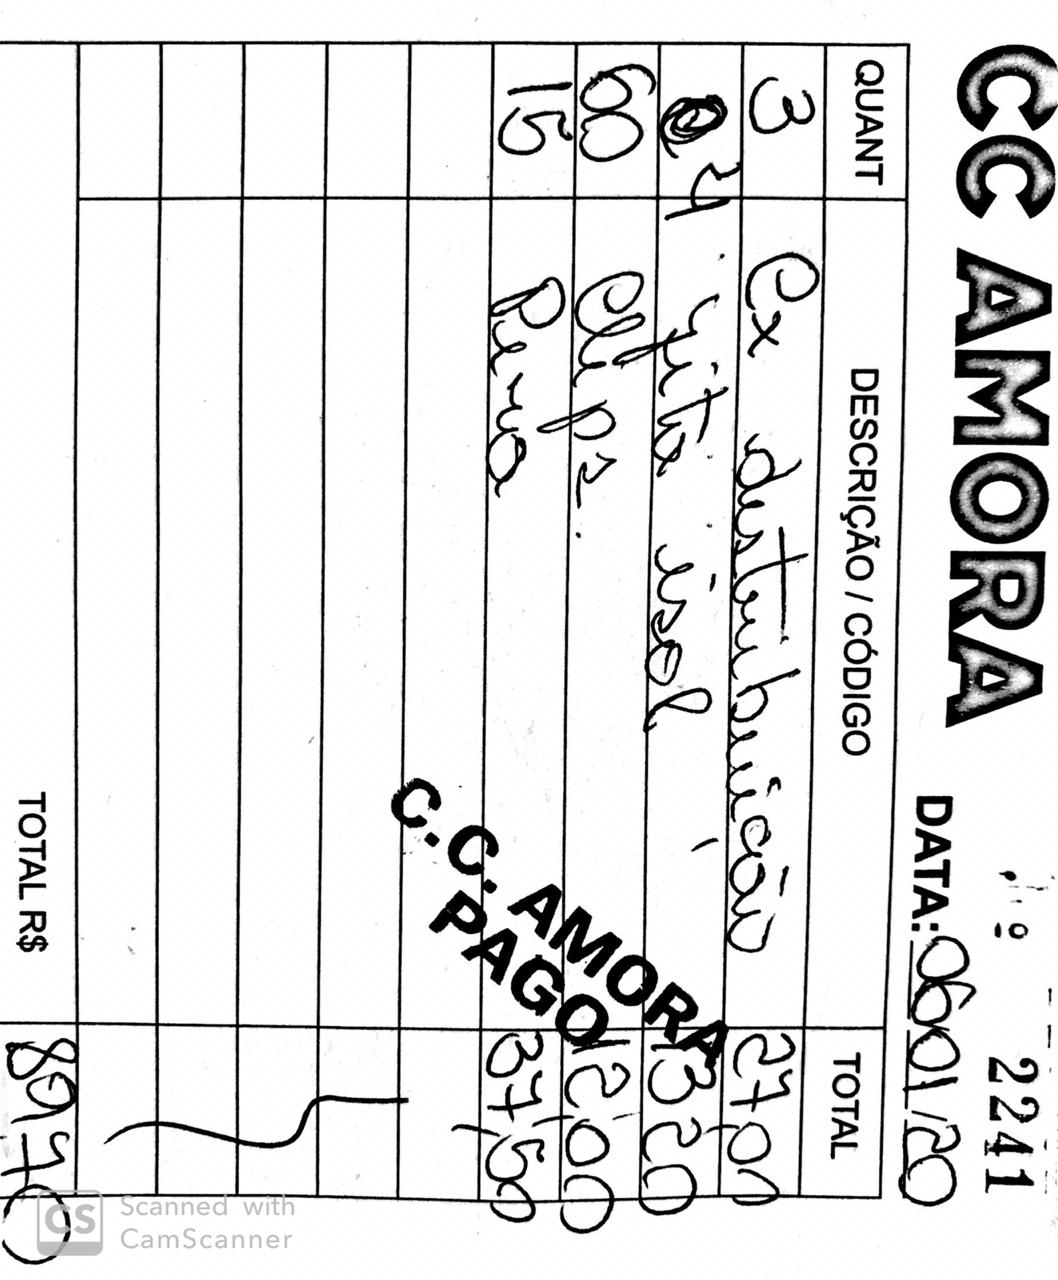 CC AMORA
Nº 2241
DATA: 06/01/20
QUANT DESCRIÇÃO / CÓDIGO TOTAL
3 Cx distribuição 27,00
04 fita isol 13,20
60 Clips. 12,00
15 37,50
C.C. AMORA
PAGO
TOTAL R$ 89,70
CS Scanned with
CamScanner